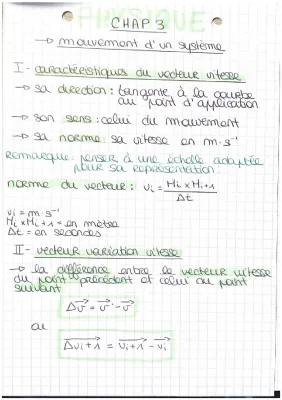 PHYSIQUE
CHAP 3
→ mouvement d'un système
I - caractéristiques du vecteur vitesse
→ sa direction : tangente à la courbe
au point d'application
→ son sens : celui du mouvement
→ sa norme : sa vitesse en m.s⁻¹
Remarque : penser à une échelle adaptée
pour sa représentation.
norme du vecteur : vi = Mi x Mi+1 / Δt
vi = m.s⁻¹
Mi x Mi+1 = en mètre
Δt = en secondes
II - vecteur variation vitesse
→ la différence entre le vecteur vitesse
du point précédent et celui du point
suivant
Δv⃗ = v⃗' - v⃗
ou
Δvi+1 = vi+1 - vi